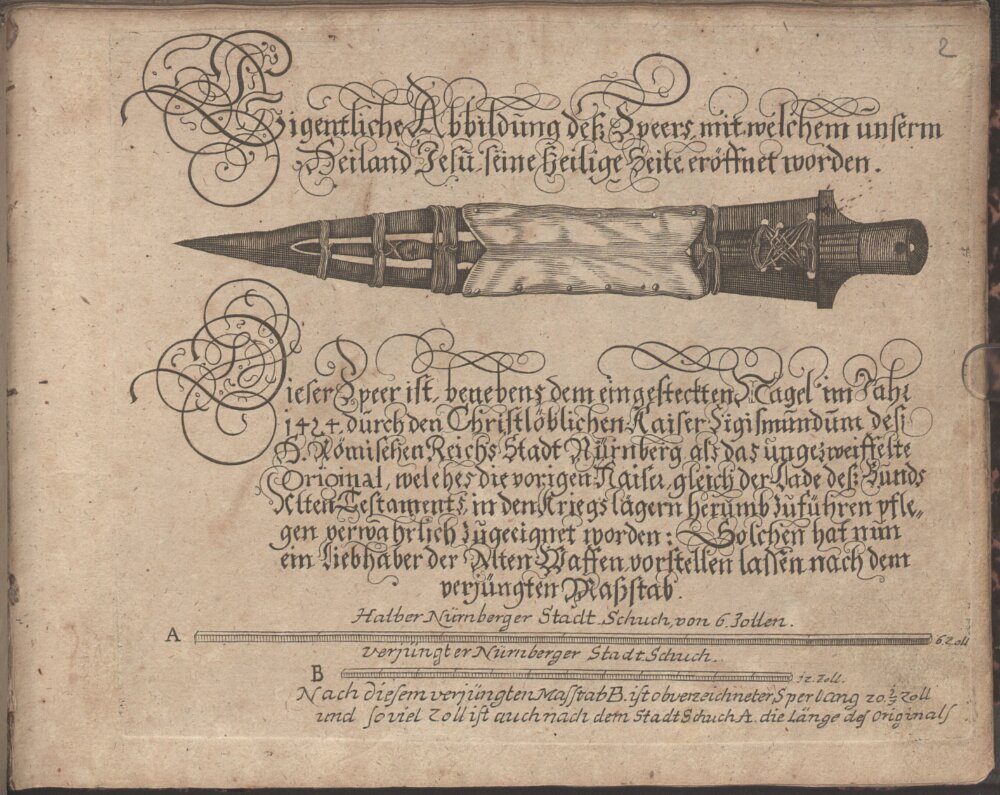 2
Eigentliche Abbildung deß Speers, mit welchem unserm
Heiland Jesu seine Heilige Seite eröffnet worden.
Dieser Speer ist, benebens dem eingesteckten Nagel im Jahr
1424. durch den Christlöblichen Kaiser Sigismundum deß
H. Römischen Reichs Stadt Nürnberg als das ungezweiffelte
Original, welches die vorigen Kaiser, gleich der Lade deß Bunds
Alten Testaments, in den Kriegslägern herumb zu führen pfle„
gen verwahrlich zugeeignet worden: Solchen hat nun
ein Liebhaber der Alten Waffen vorstellen lassen nach dem
verjüngten Maßstab.
Halber Nürnberger Stadt Schuch, von 6. Zollen.
A 6 Zoll
verjüngter Nürnberger Stadt Schuch.
B 12. Zoll.
Nach diesem verjüngten Masstab B. ist obverzeichneter Sper lang 20. 1/2 Zoll
und so viel Zoll ist auch nach dem Stadt Schuch A. die Länge des Originals